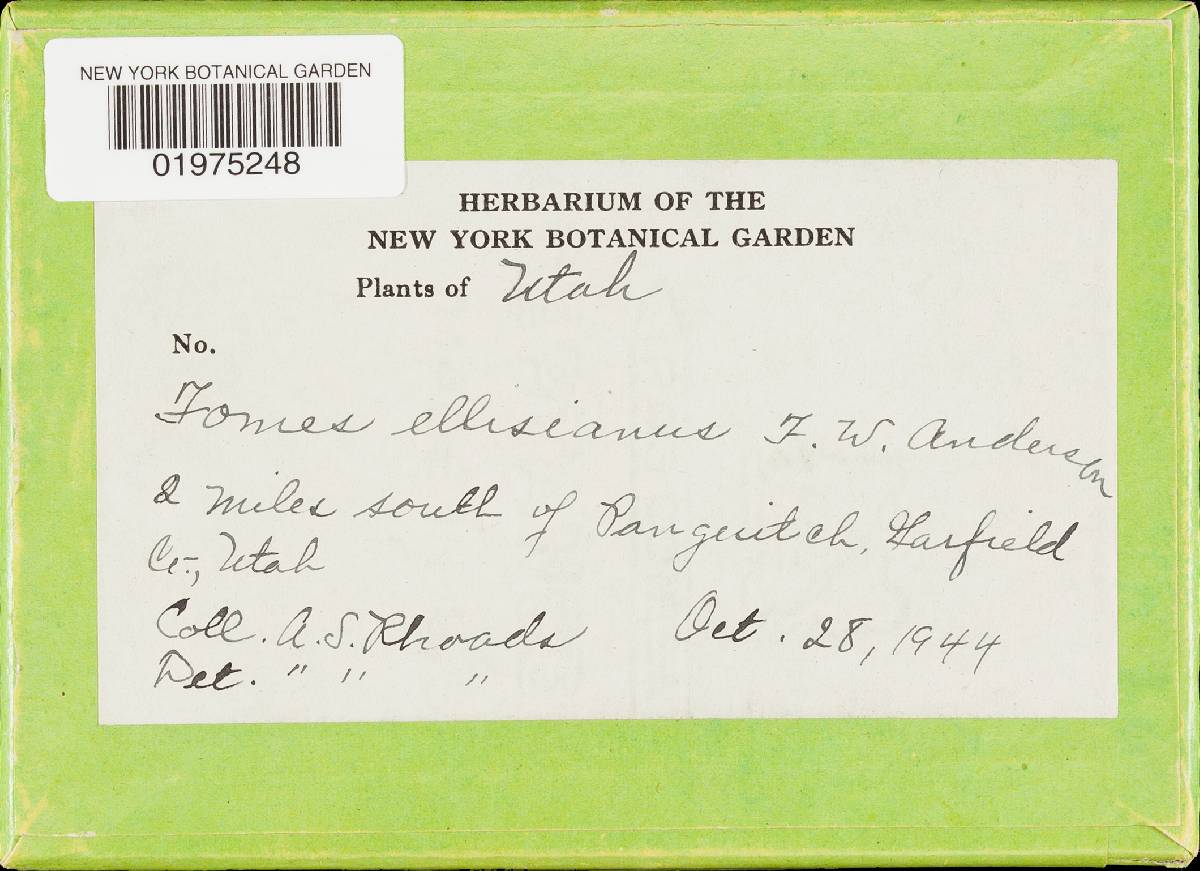 NEW YORK BOTANICAL GARDEN
01975248
HERBARIUM OF THE
NEW YORK BOTANICAL GARDEN
Plants of Utah
No.
Fomes ellisianus F. W. Anderson
2 miles south of Panguitch, Garfield
Co., Utah
Coll. A. S. Rhoads Oct. 28, 1944
Det. " " "